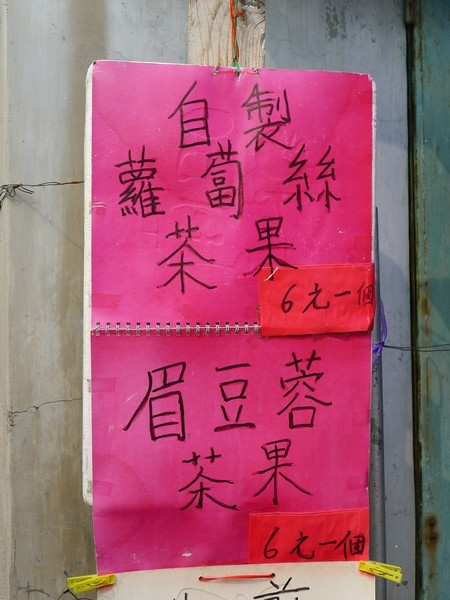 自製
蘿蔔絲
茶果
6元一個
眉豆蓉
茶果
6元一個